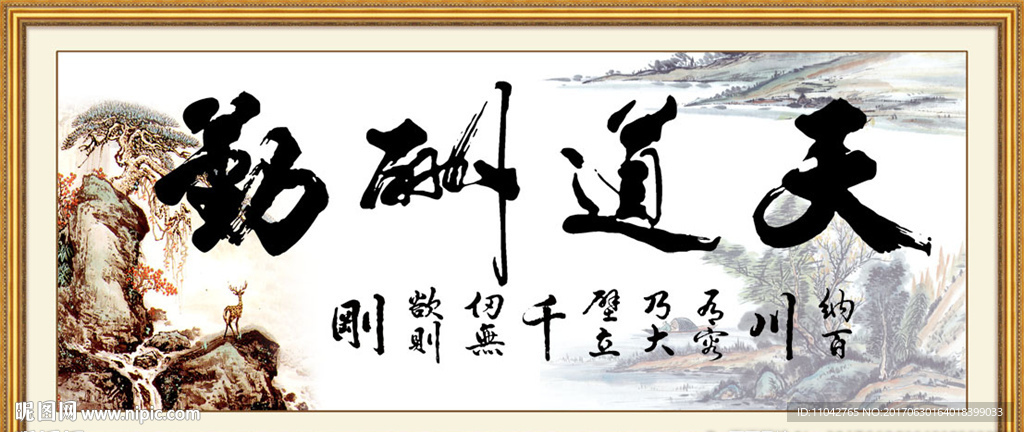 天道酬勤
納百川有容乃大壁立千仞無欲則剛
昵图网 www.nipic.com
ID:11042765 NO:20170630164018399033